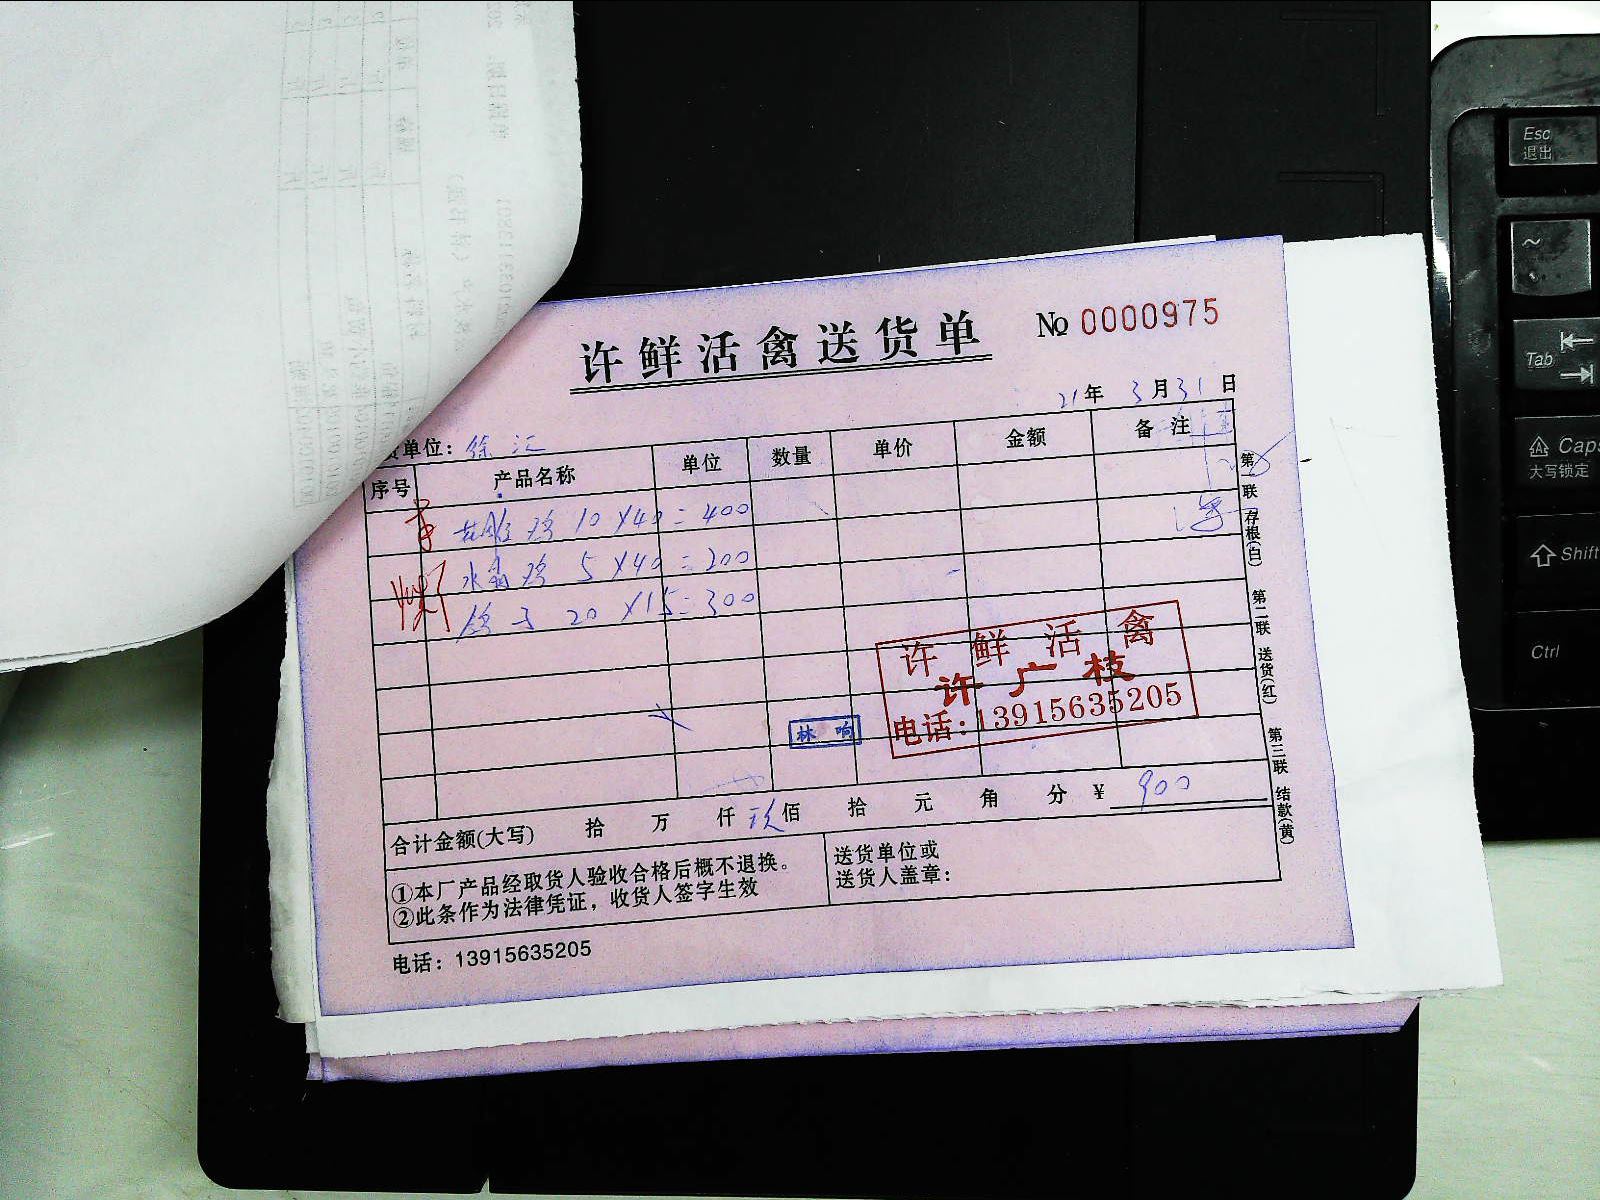 许鲜活禽送货单
No 0000975
21年 3月31日
单位：徐汇
序号 产品名称 单位 数量 单价 金额 备注
花雕鸡 10×40=400
水晶鸡 5×40=200
鸽子 20×15=300
许鲜活禽
许广枝
电话：13915635205
林响
合计金额(大写) 拾 万 仟 玖佰 拾 元 角 分 ¥ 900
①本厂产品经取货人验收合格后概不退换。
②此条作为法律凭证，收货人签字生效
送货单位或
送货人盖章：
电话：13915635205
第一联 存根(白) 第二联 送货(红) 第三联 结款(黄)
Esc
退出
~
Tab
Caps
大写锁定
Shift
Ctrl